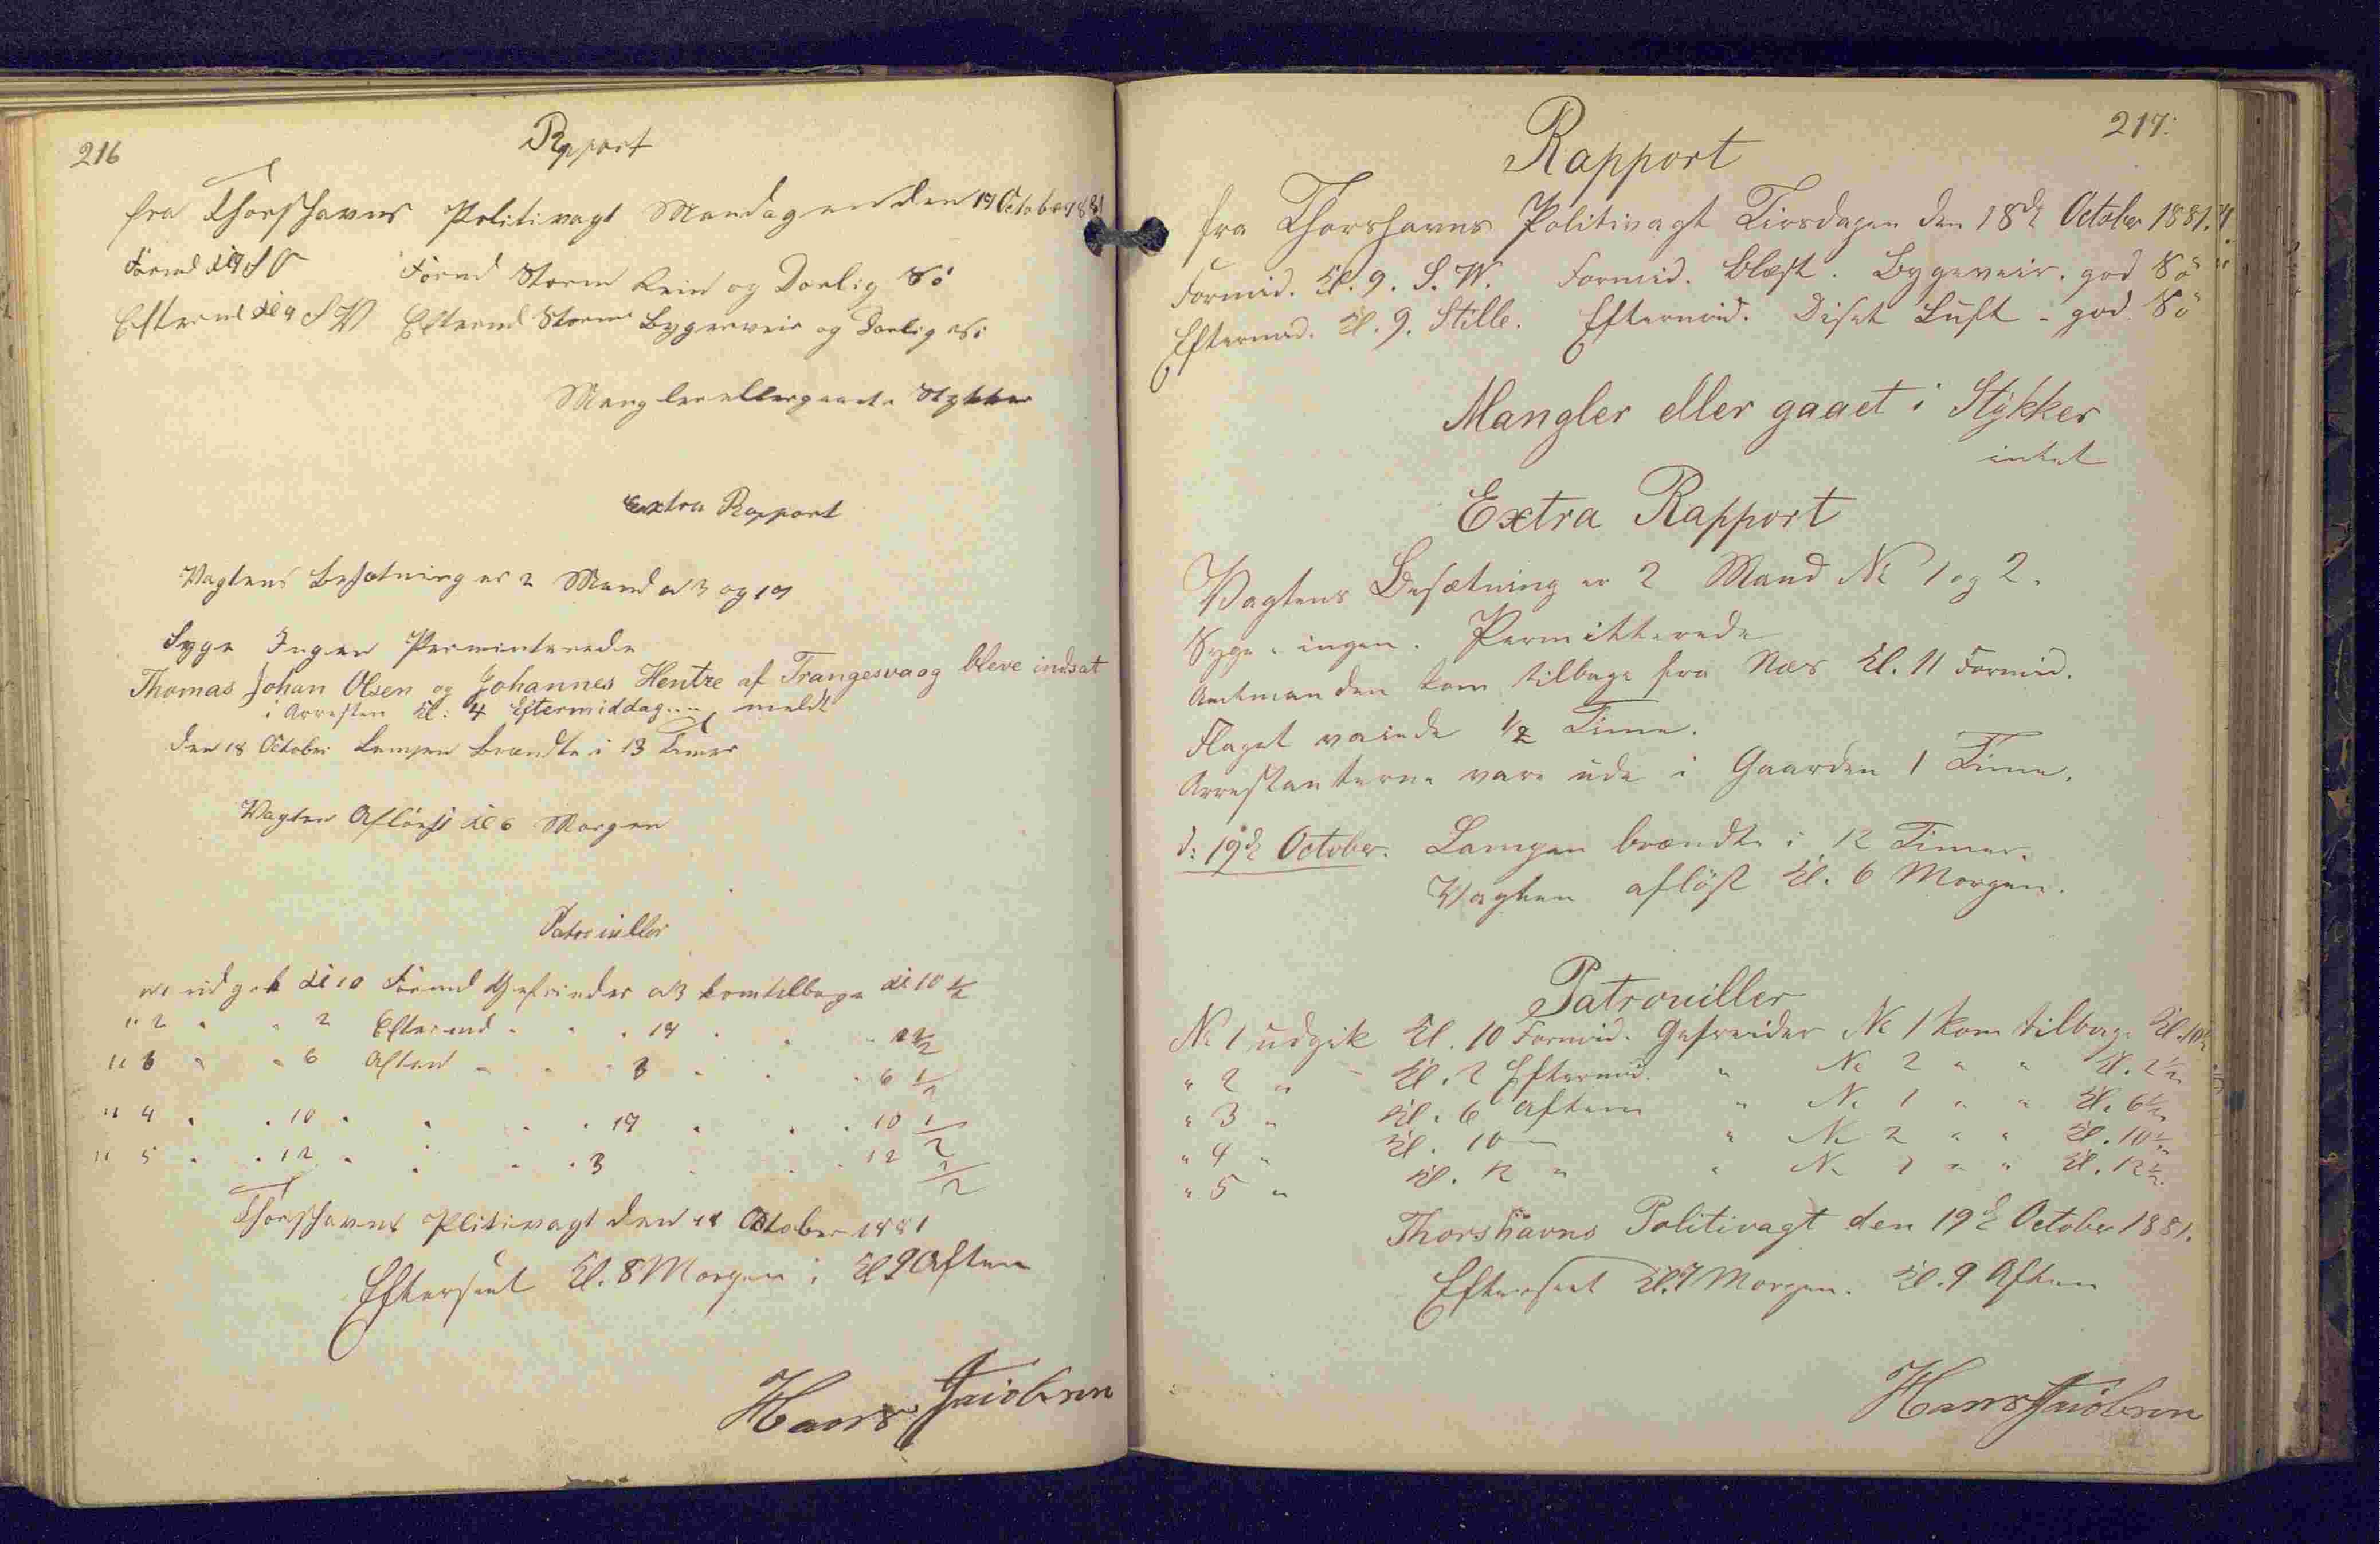 216
Rapport
fra Thorshavns Politivagt Mandagen den 17 October 1881
Formd Kl 9 S O Formd Storm Rein og Daarlig Sö
Eftermd Kl 9 S W Eftermd Storm Bygeveir og Daarlig Sö
Mangler eller gaaet i Stykker
Extra Rapport
Vagtens Besætning er 2 Mand No 3 og 17
Syge Ingen Perminterede
Thomas Johan Olsen og Johannes Hentze af Trangesvaag bleve indsat
i Arresten Kl: 4 Eftermiddag meldt
Den 18 October Lampen brændte i 13 Timer
Vagten Aflöst Kl 6 Morgen
Patrouiller
No 1 udgik Kl 10 Formd Gefreider No 3 kom tilbage Kl 10 1/2
" 2 " " 2 Eftermd " " " 17 " " " 2 1/2
" 3 " " 6 Aften " " " 3 " " " 6 1/2
" 4 " " 10 " " " " 17 " " " 10 1/2
" 5 " " 12 " " " " 3 " " " 12 1/2
Thorshavns Plitivagt den 18 October 1881
Efterseet Kl. 8 Morgen i Kl 9 Aften
Hans Jacobsen
217.
Rapport
fra Thorshavns Politivagt Tirsdagen den 18de October 1881.
Formid. Kl. 9. S. W. Formid. Blæst. Bygeveir. god Sö
Eftermid. Kl. 9. Stille. Eftermid. Diset Luft - god Sö
Mangler eller gaaet i Stykker
intet
Extra Rapport
Vagtens Besætning er 2 Mand No 1 og 2.
Syge : ingen. Permitterede
Amtmanden kom tilbage fra Næs Kl. 11 Formid.
Flaget vaiede 1/2 Time.
Arrestanterne vare ude i Gaarden 1 Time.
d: 19de October. Lampen brændte i 12 Timer.
Vagten aflöst Kl. 6 Morgen.
Patrouiller
No 1 udgik Kl. 10 Formid. Gefreider No 1 kom tilbage Kl. 10 1/2
" 2 " Kl. 2 Eftermid. " No 2 " " Kl. 2 1/2
" 3 " Kl. 6 Aften " No 1 " " Kl. 6 1/2
" 4 " Kl. 10 — " No 2 " " Kl. 10 1/2
" 5 " Kl. 12 " " No 1 " " Kl. 12 1/2
Thorshavns Politivagt den 19de October 1881.
Efterseet Kl. 7 Morgen. Kl. 9 Aften
Hans Jacobsen